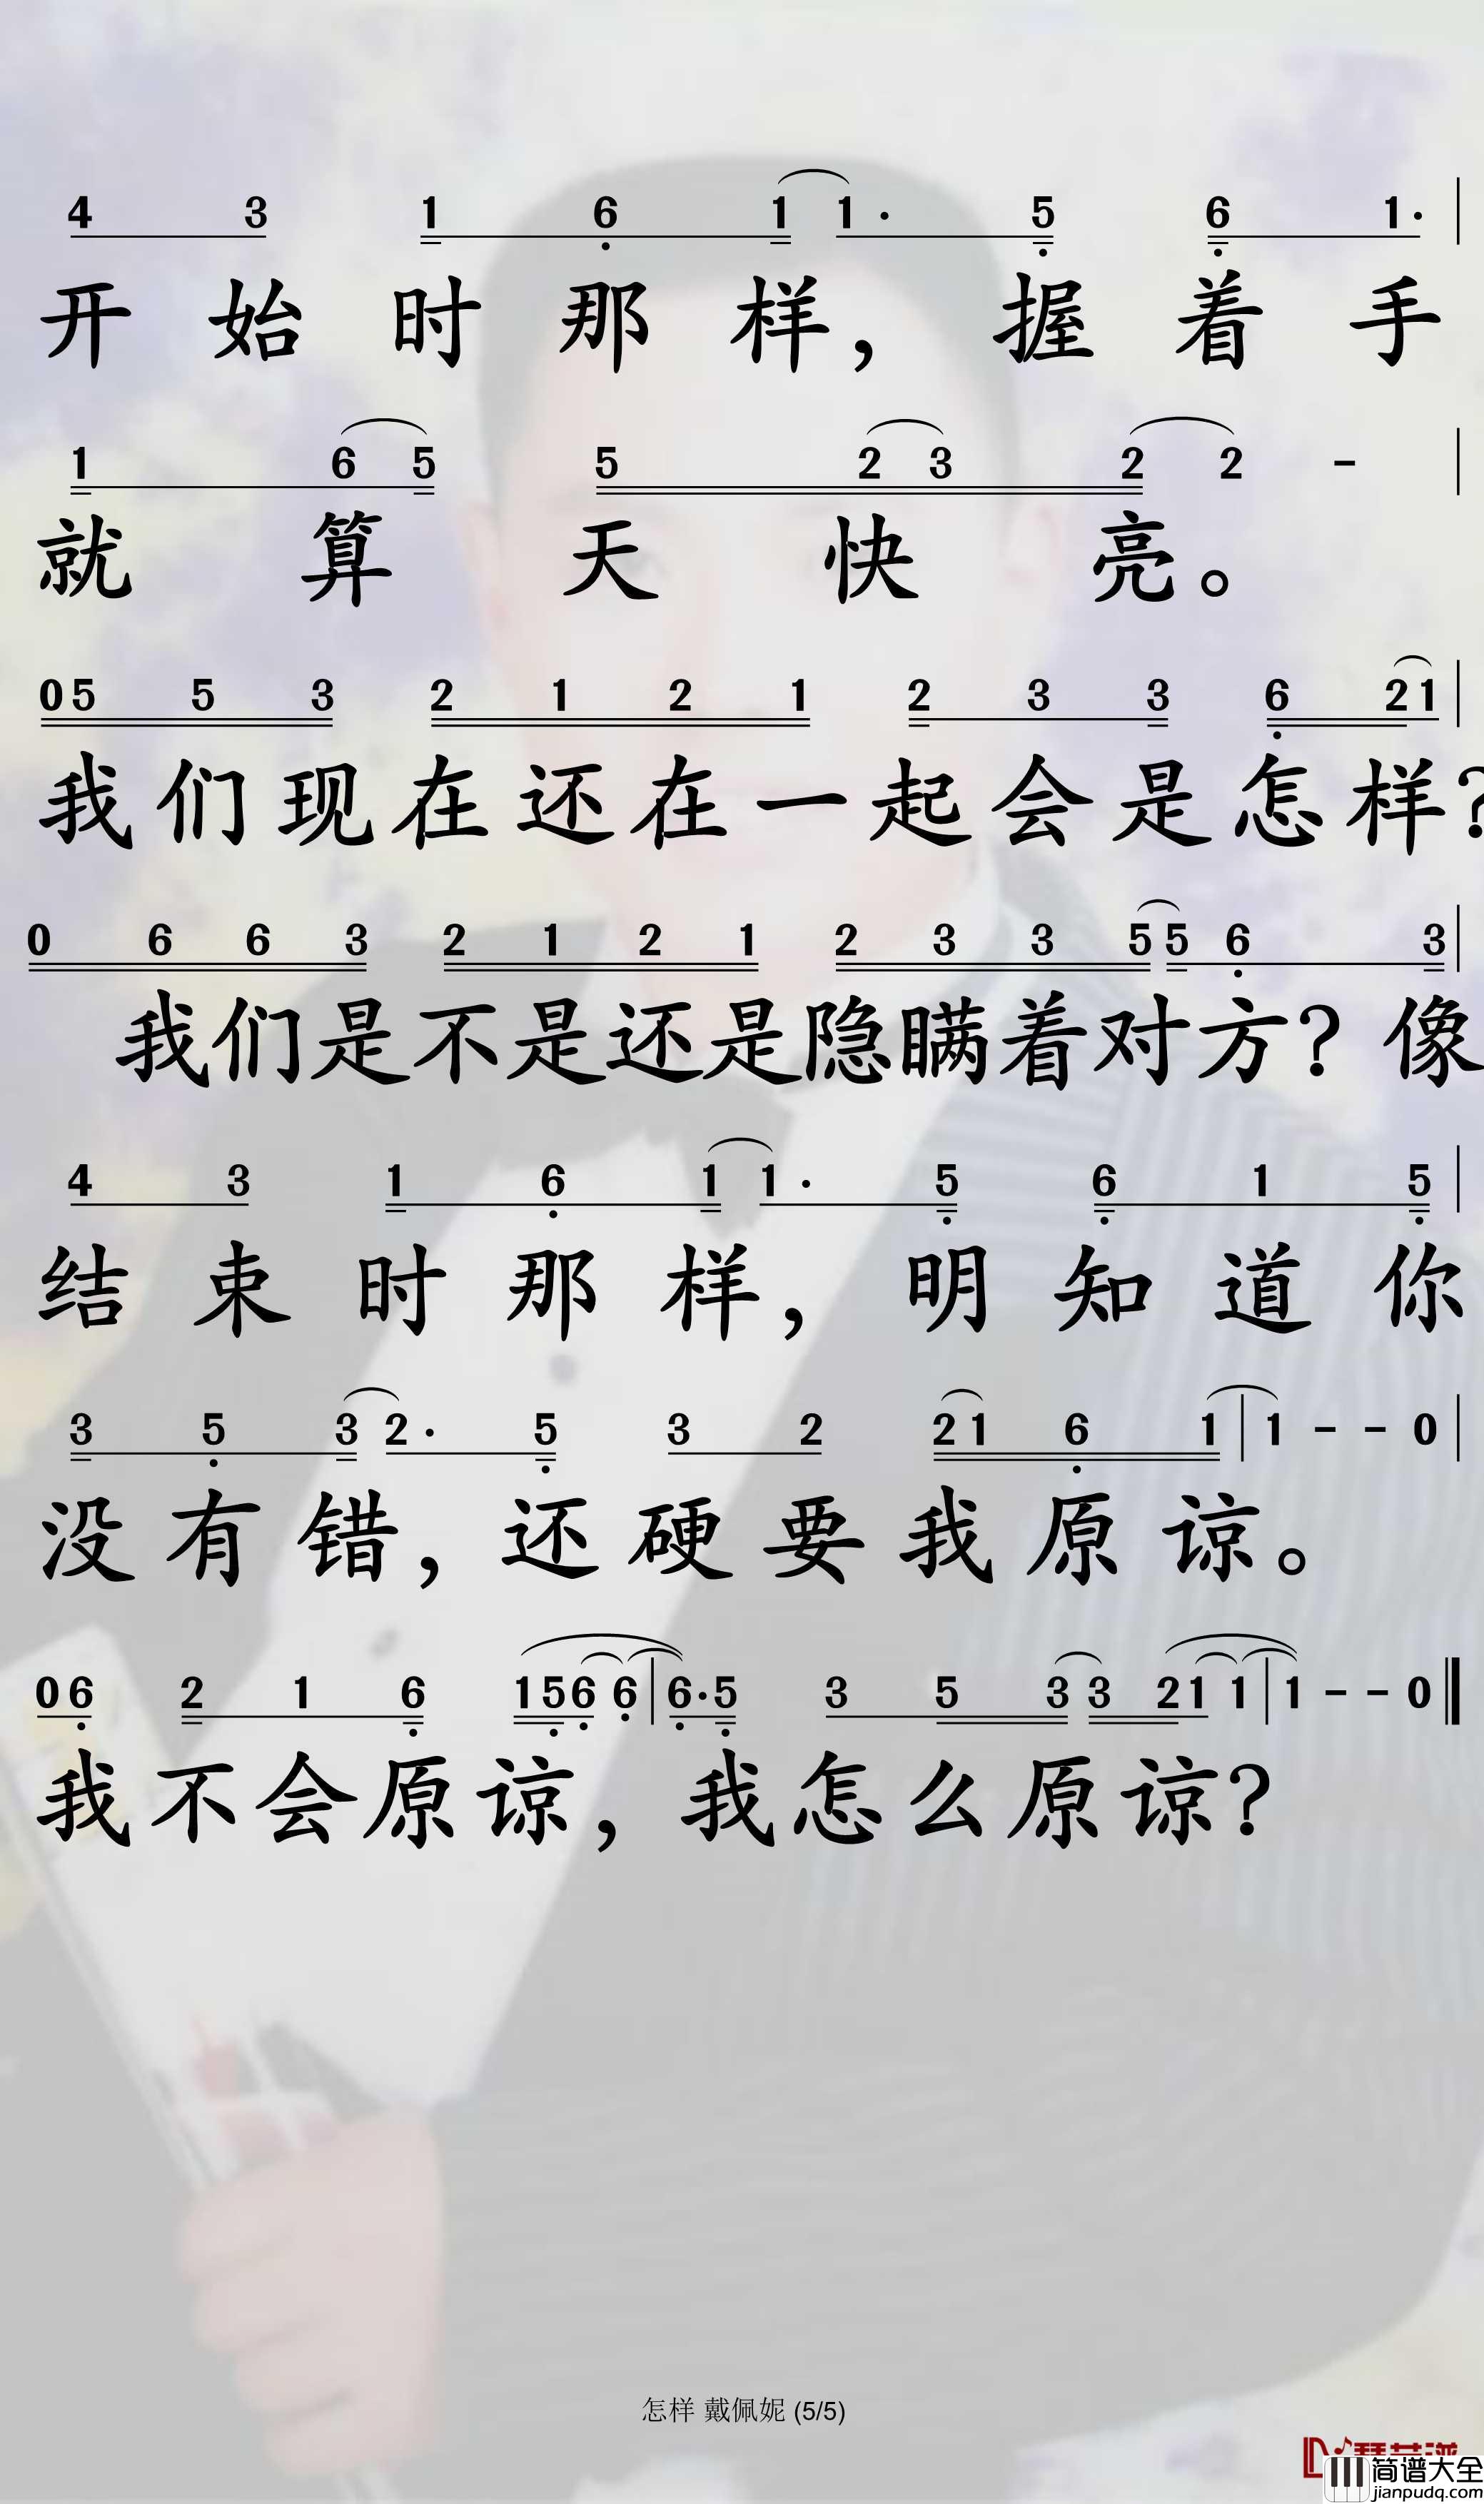 4 3 1 6 1 1· 5 6 1·
开始时那样，握着手
1 6 5 5 2 3 2 2 -
就算天快亮。
0 5 5 3 2 1 2 1 2 3 3 6 2 1
我们现在还在一起会是怎样？
0 6 6 3 2 1 2 1 2 3 3 5 5 6 3
我们是不是还是隐瞒着对方？像
4 3 1 6 1 1· 5 6 1 5
结束时那样，明知道你
3 5 3 2· 5 3 2 2 1 6 1 1 - - 0
没有错，还硬要我原谅。
0 6 2 1 6 1 5 6 6 6· 5 3 5 3 3 2 1 1 1 - - 0
我不会原谅，我怎么原谅？
怎样 戴佩妮 (5/5)
简谱大全
jianpudq.com